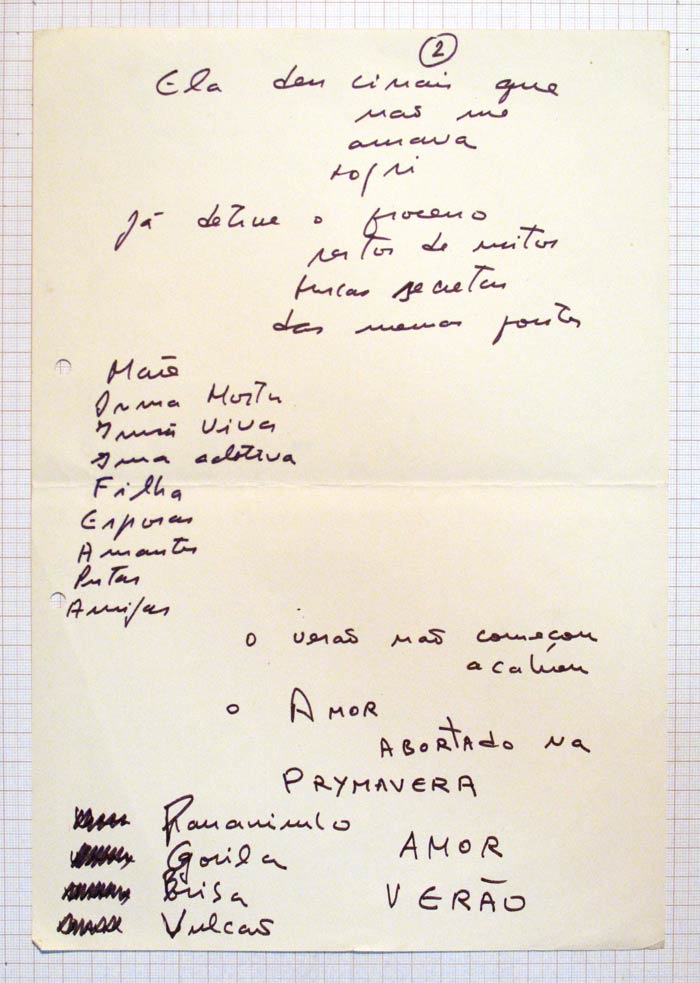 2
Ela deu cinais que
não me
amava
sofri
Já detive o processo
partos de mitos
trocas secretas
das mesmas
Mãe
Irma Morta
Irmã Viva
Irma adotiva
Filha
Esposas
Amantes
Putas
Amigas
o verão não começou
acabou
o AMOR
ABORTADO NA
PRYMAVERA
Gorila
AMOR
Brisa
VERÃO
Vulcão